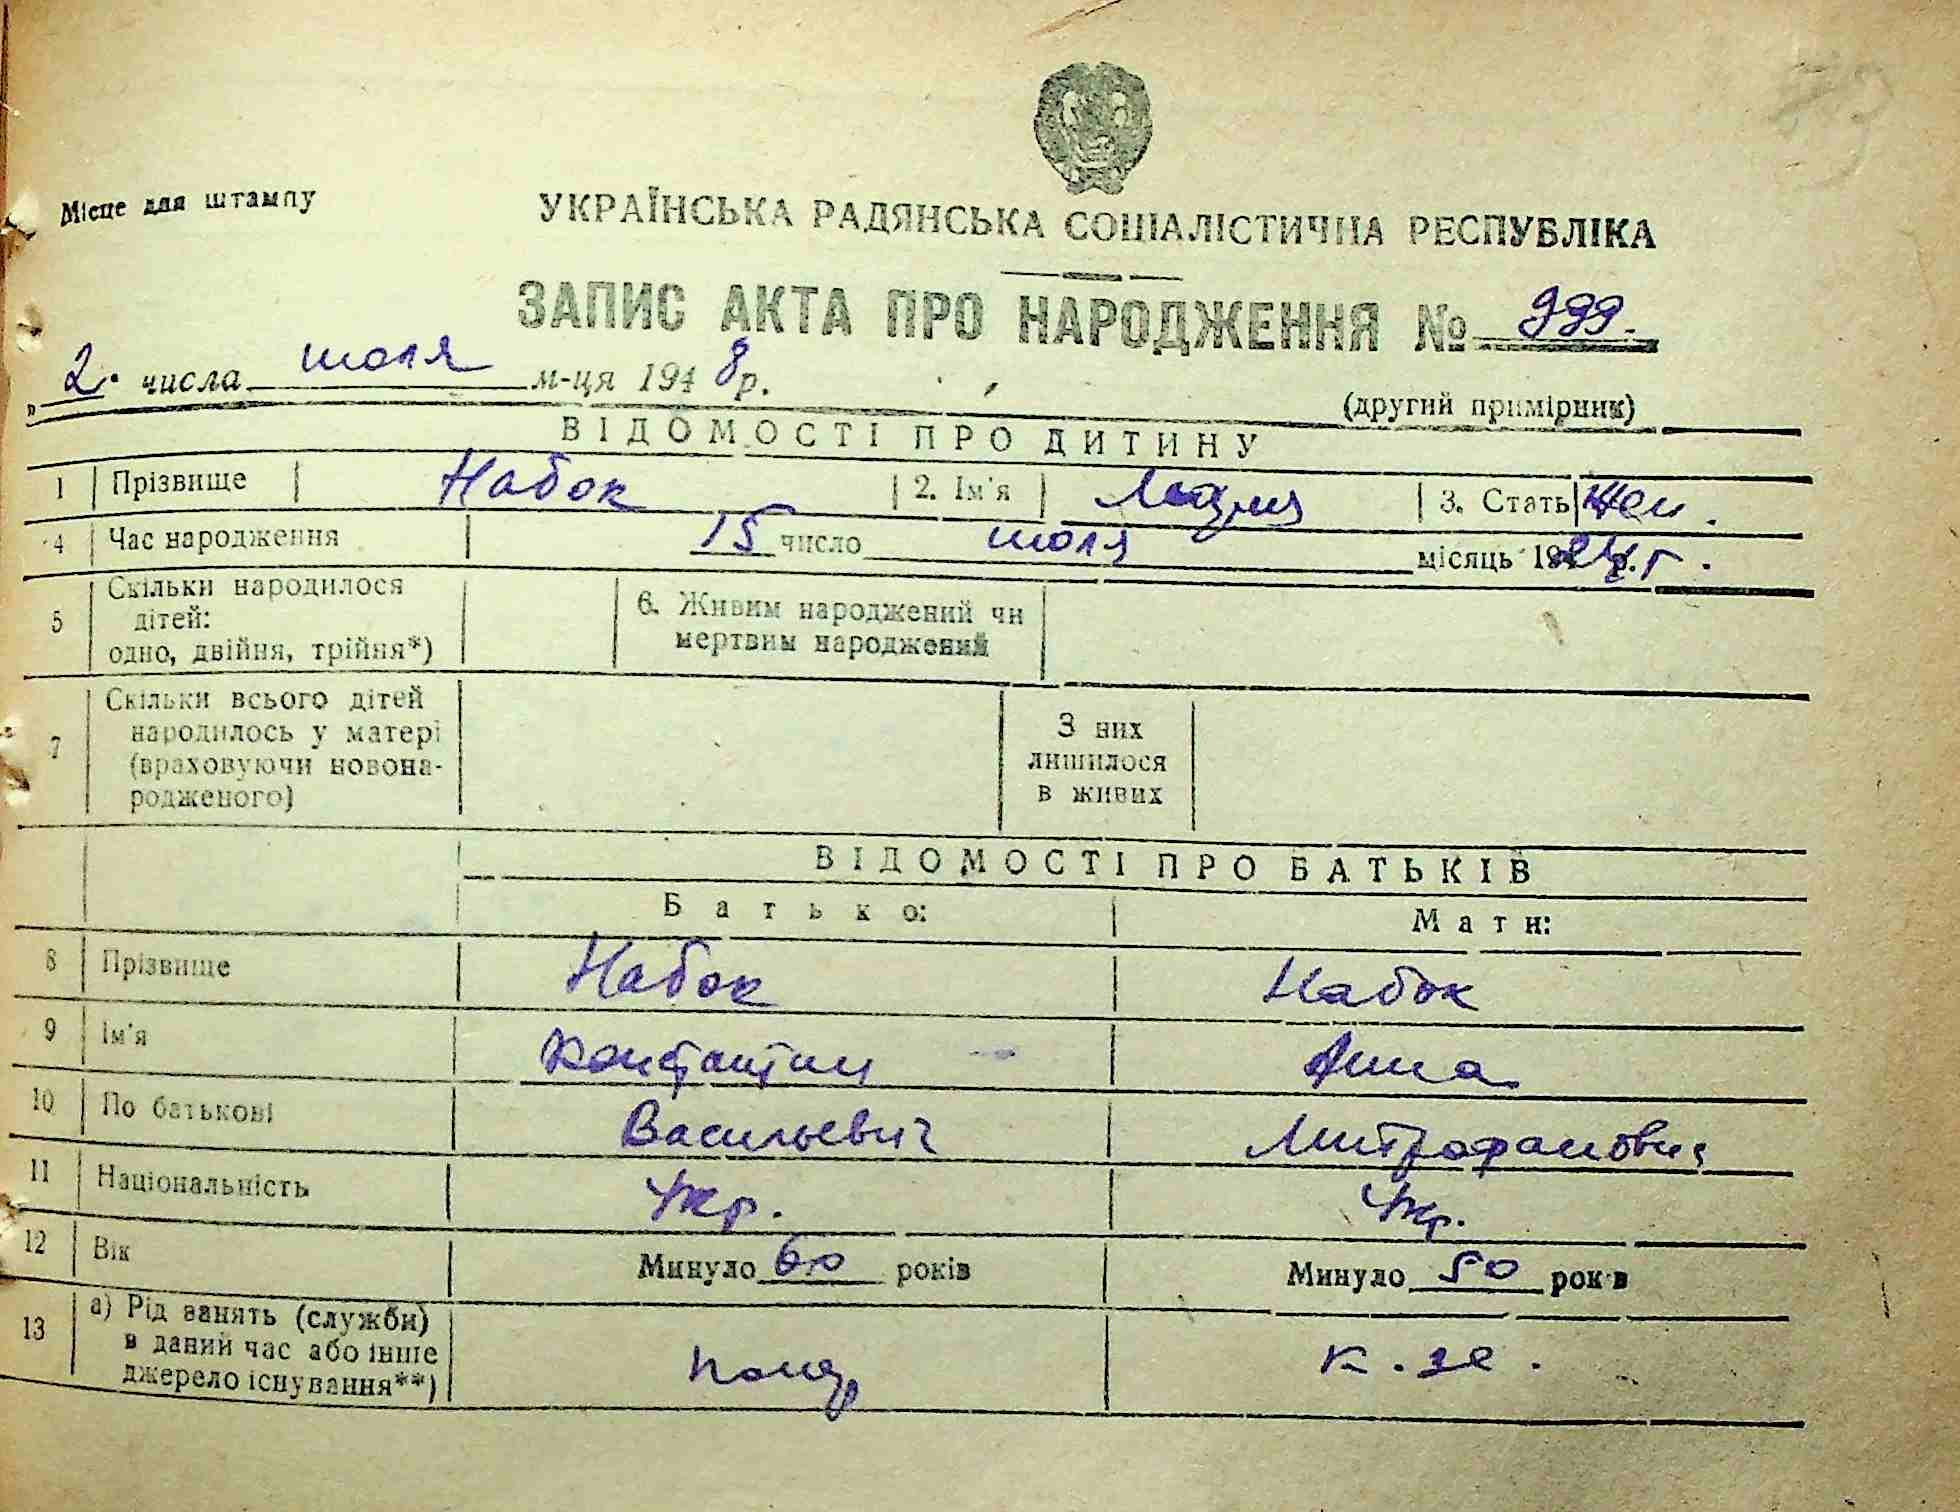 Місце для штампу
УКРАЇНСЬКА РАДЯНСЬКА СОЦІАЛІСТИЧНА РЕСПУБЛІКА
ЗАПИС АКТА ПРО НАРОДЖЕННЯ № 999.
„ 2. числа июля м-ця 1948р.
(другий примірник)
ВІДОМОСТІ ПРО ДИТИНУ
1 Прізвище Набок 2. Ім'я Лидия 3. Стать Жен.
4 Час народження 15 число июля місяць 1924 г.
5 Скільки народилося дітей: одно, двійня, трійня*) 6. Живим народжений чи мертвим народжений
7 Скільки всього дітей народилось у матері (враховуючи новонародженого) З них лишилося в живих
ВІДОМОСТІ ПРО БАТЬКІВ
Батько: Мати:
8 Прізвище Набок Набок
9 Ім'я Константин Анна
10 По батькові Васильевич Митрофановна
11 Національність Укр. Укр.
12 Вік Минуло 60 років Минуло 50 років
13 а) Рід занять (служби) в даний час або інше джерело існування**) к.зе.